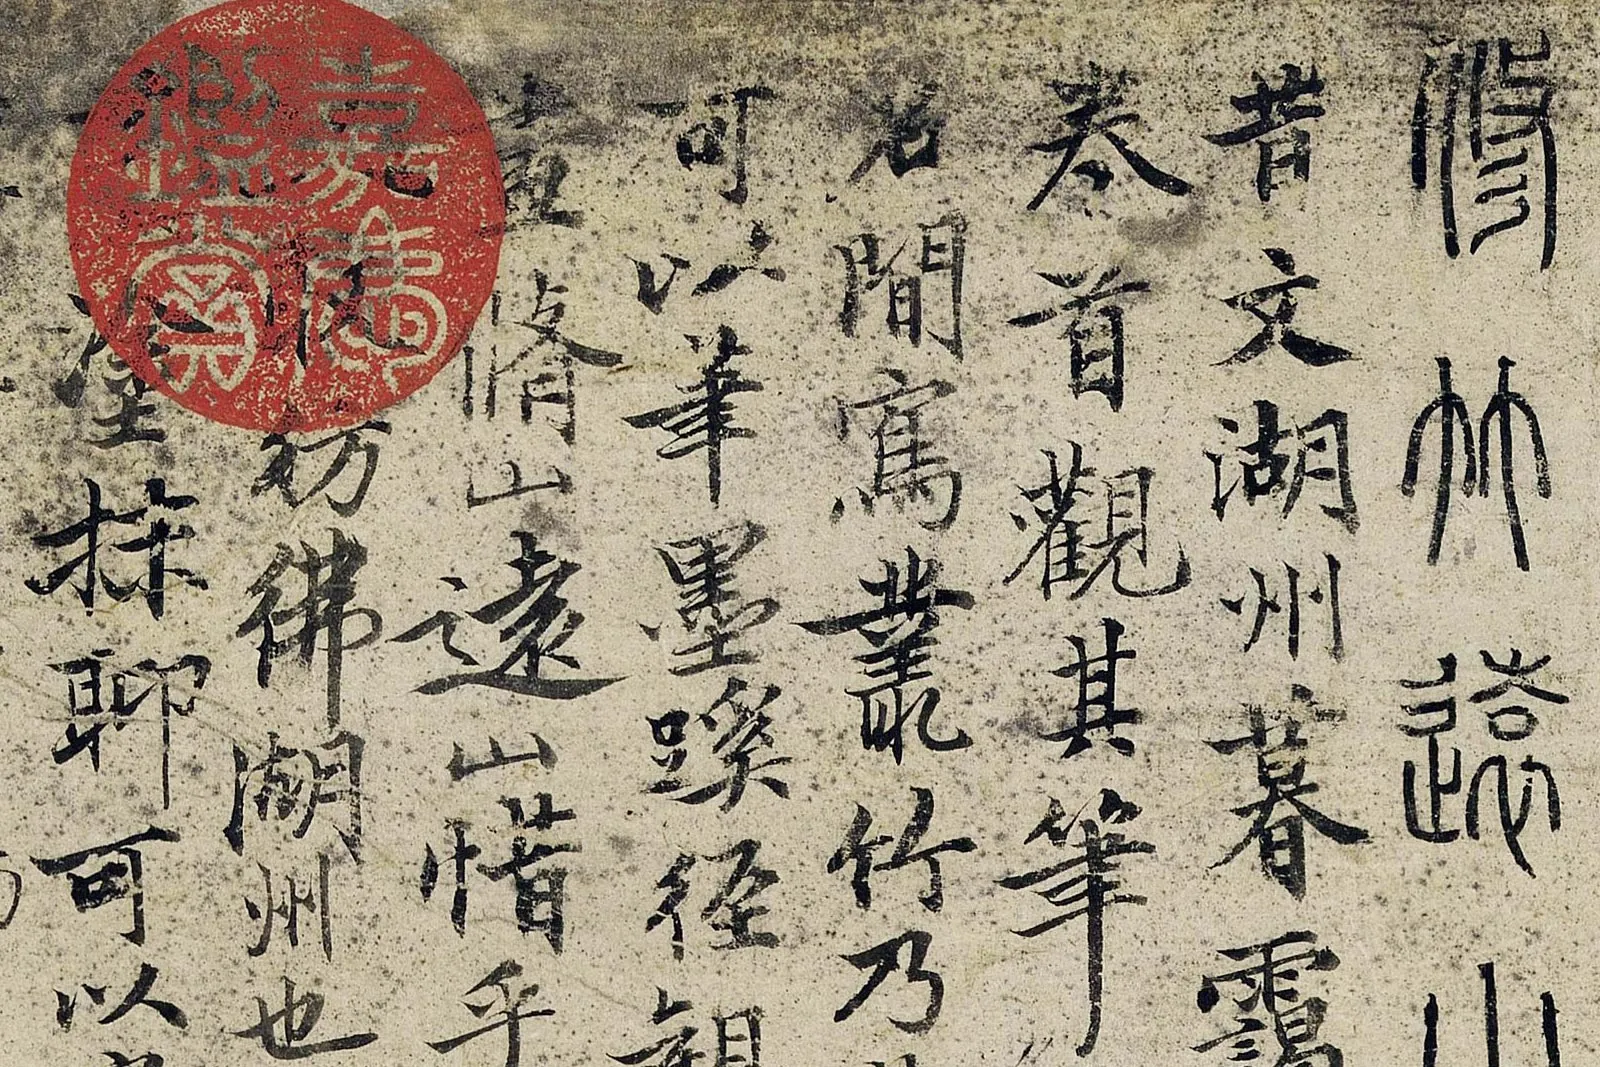 修竹遠山
昔文湖州暮靄
卷首觀其筆
名間寫叢竹乃
可以筆墨蹊徑觀
盡脩山遠山惜乎
彷彿湖州也
塗抹聊可以
嘉慶鑑賞